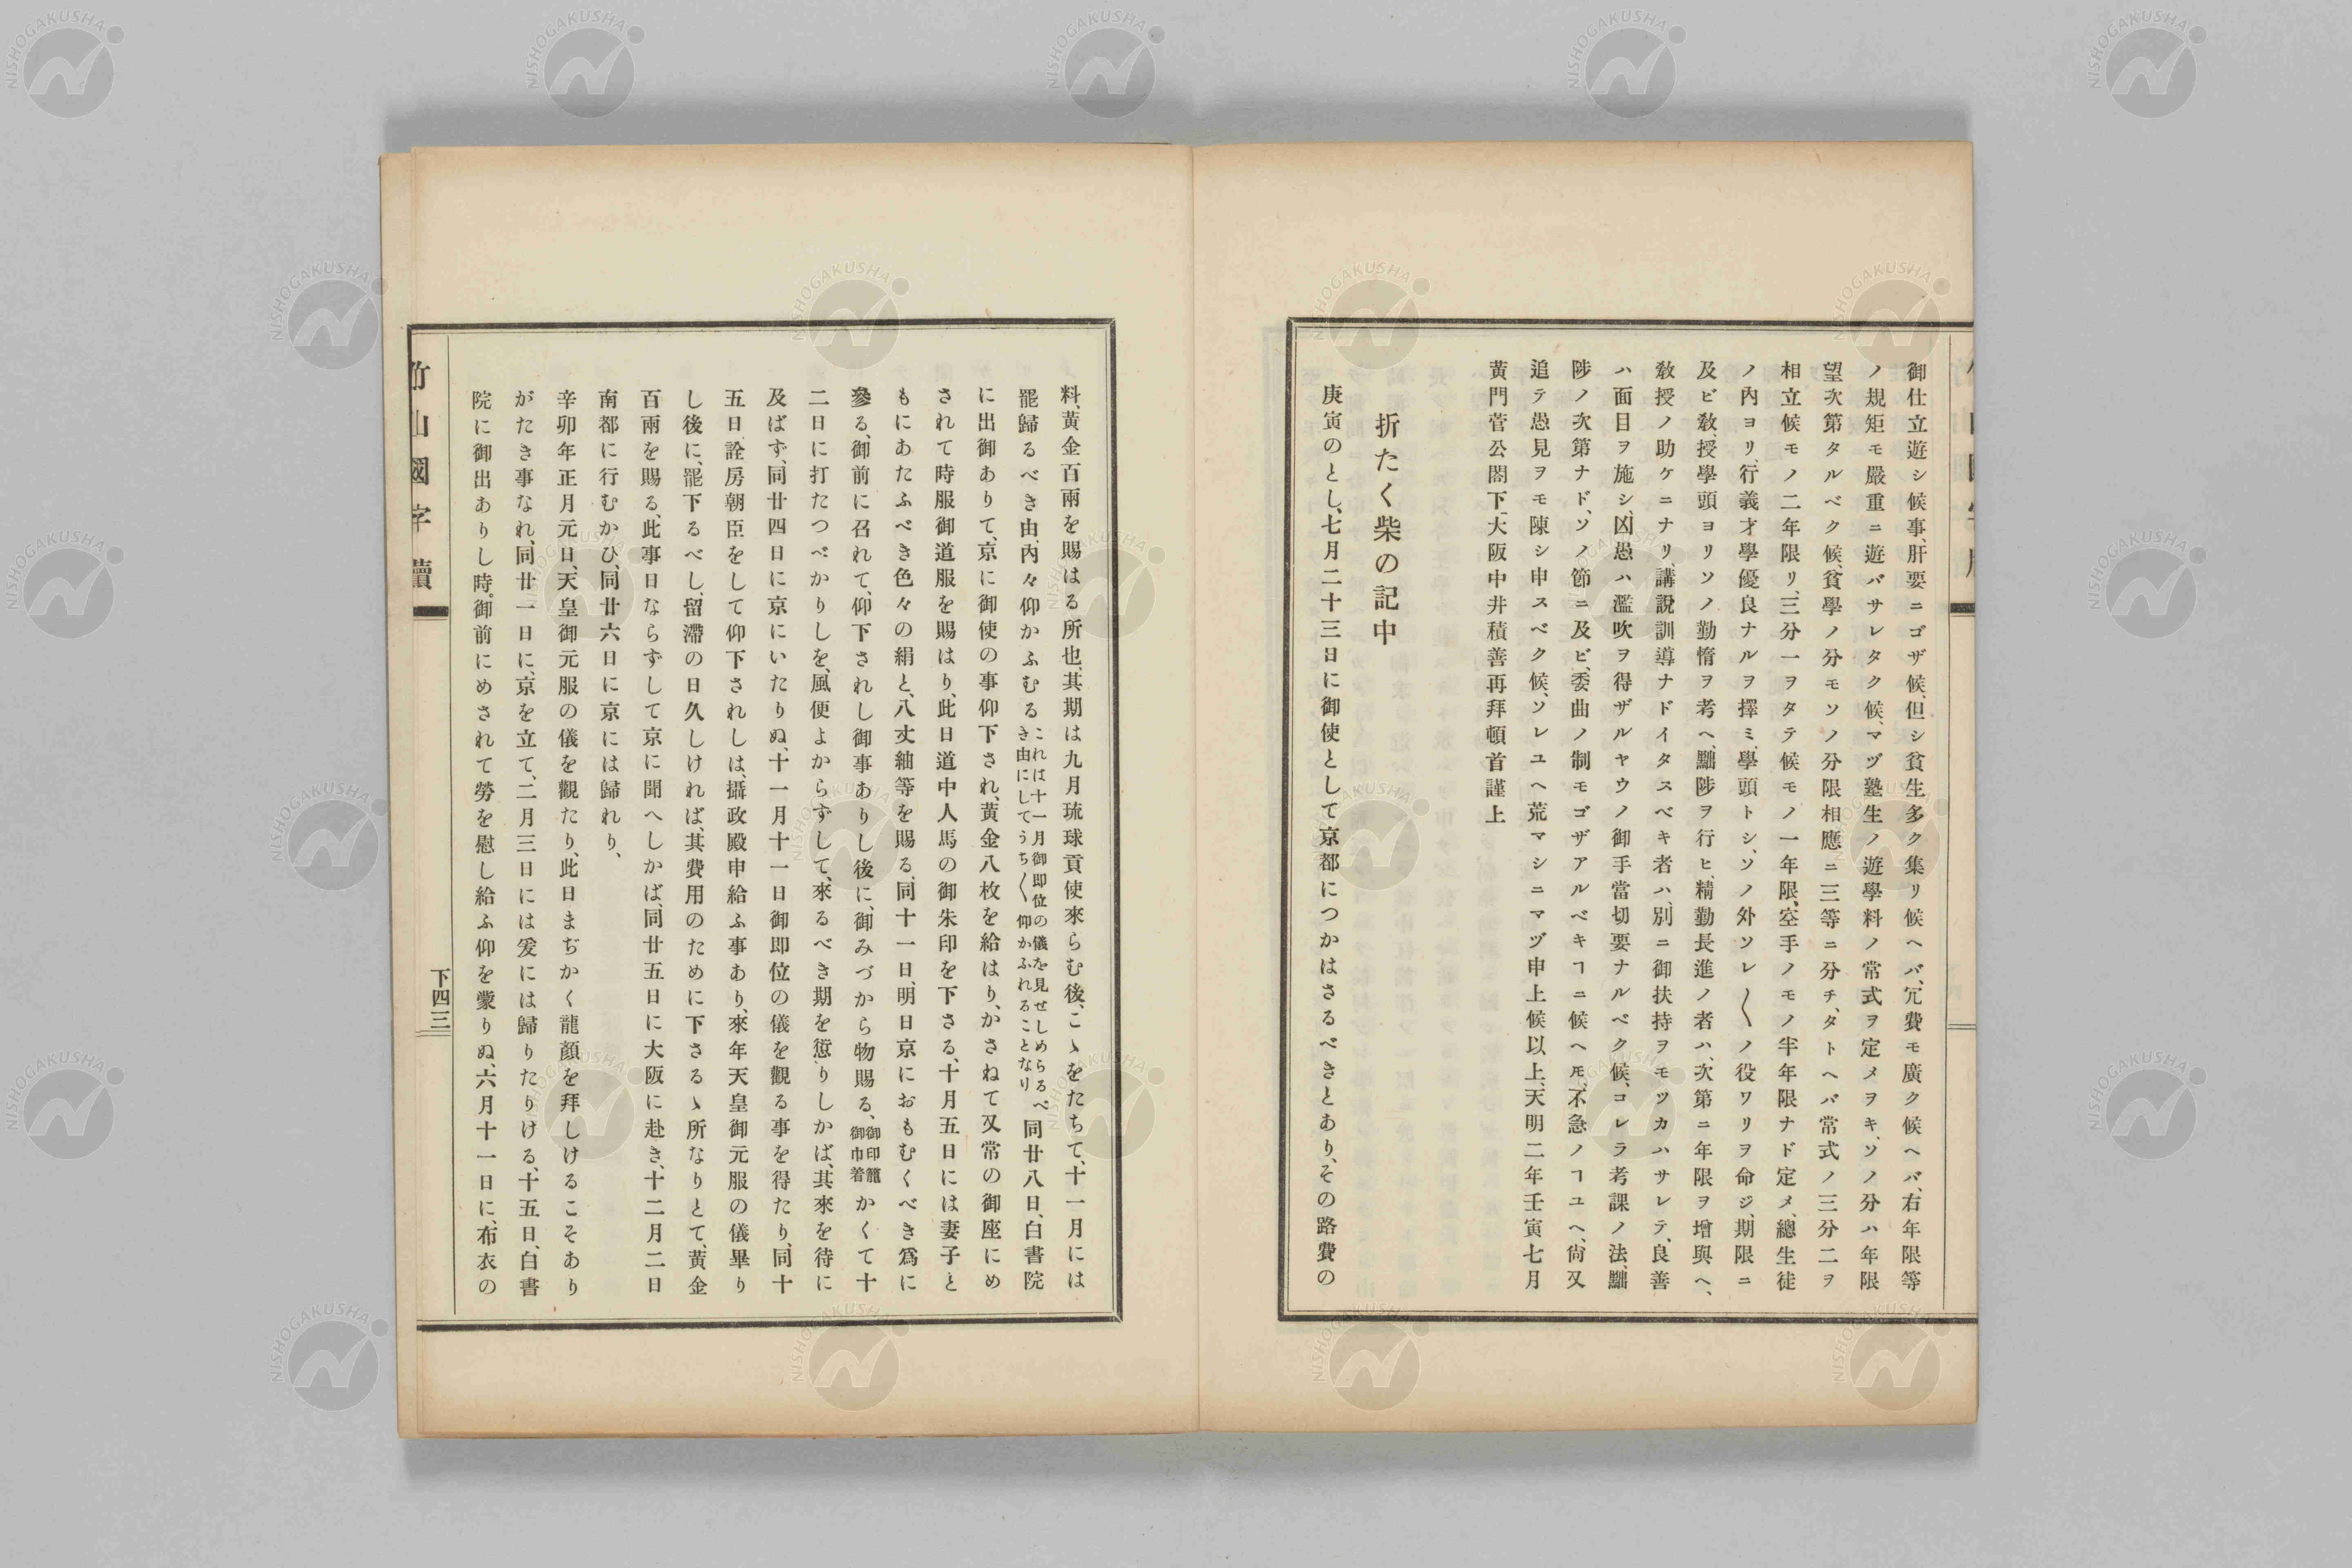 御仕立遊シ候事、肝要ニゴザ候、但シ貧生多ク集リ候ヘバ、冗費モ廣ク候ヘバ、右年限等
ノ規矩モ嚴重ニ遊バサレタク候、マヅ塾生ノ遊學料ノ常式ヲ定メヲキ、ソノ分ハ年限
望次第タルベク候、貧學ノ分モソノ分限相應ニ三等ニ分チ、タトヘバ常式ノ三分二ヲ
相立候モノ二年限リ、三分一ヲタテ候モノ一年限、空手ノモノ半年限ナド定メ、總生徒
ノ內ヨリ、行義才學優良ナルヲ擇ミ、學頭トシ、ソノ外ソレ〱ノ役ワリヲ命ジ、期限ニ
及ビ敎授學頭ヨリソノ勤惰ヲ考ヘ、黜陟ヲ行ヒ、精勤長進ノ者ハ、次第ニ年限ヲ增與ヘ、
敎授ノ助ケニナリ、講說訓導ナドイタスベキ者ハ、別ニ御扶持ヲモツカハサレテ、良善
ハ面目ヲ施シ、凶愚ハ濫吹ヲ得ザルヤウノ御手當切要ナルベク候、コレラ考課ノ法、黜
陟ノ次第ナド、ソノ節ニ及ビ、委曲ノ制モゴザアルベキヿニ候ヘ𪜈、不急ノヿユヘ、尙又
追テ愚見ヲモ陳シ申スベク候、ソレユヘ荒マシニマヅ申上候以上、天明二年壬寅七月
黃門菅公閤下、大阪中井積善再拜頓首謹上
折たく柴の記中
庚寅のとし、七月二十三日に御使として京都につかはさるべきとあり、その路費の
料、黃金百兩を賜はる所也、其期は九月琉球貢使來らむ後、こゝをたちて、十一月には
罷歸るべき由、內々仰かふむる これは十一月御即位の儀を見せしめらるべ
き由にしてうち〱仰かふれることなり 同廿八日、白書院
に出御ありて、京に御使の事仰下され、黃金八枚を給はり、かさねて又常の御座にめ
されて時服御道服を賜はり、此日道中人馬の御朱印を下さる、十月五日には妻子と
もにあたふべき色々の絹と、八丈紬等を賜る、同十一日、明日京におもむくべき爲に
參る、御前に召れて、仰下されし御事ありし後に、御みづから物賜る、御印籠
御巾着 かくて十
二日に打たつべかりしを、風便よからずして、來るべき期を愆りしかば、其來を待に
及ばず、同廿四日に京にいたりぬ、十一月十一日御即位の儀を觀る事を得たり、同十
五日、詮房朝臣をして仰下されしは、攝政殿申給ふ事あり、來年天皇御元服の儀畢り
し後に、罷下るべし、留滯の日久しければ、其費用のために下さるゝ所なりとて、黃金
百兩を賜る、此事日ならずして京に聞へしかば、同廿五日に大阪に赴き、十二月二日
南都に行むかひ、同廿六日に京には歸れり、
辛卯年正月元日、天皇御元服の儀を觀たり、此日まぢかく龍顏を拜しけるこそあり
がたき事なれ、同廿一日に、京を立て、二月三日には爰には歸りたりける、十五日、白書
院に御出ありし時。御前にめされて勞を慰し給ふ仰を蒙りぬ、六月十一日に、布衣の
竹山國字牘
下四三